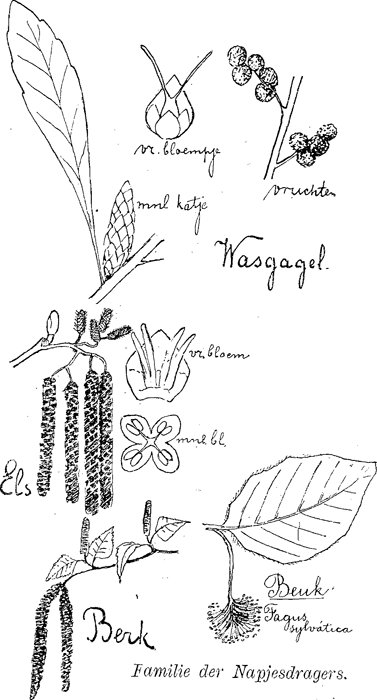 vr. bloempje
vruchten
mnl katje
Wasgagel.
vr. bloem
mnl bl.
Els
Beuk.
Fagus
sylvatica
Berk
Familie der Napjesdragers.